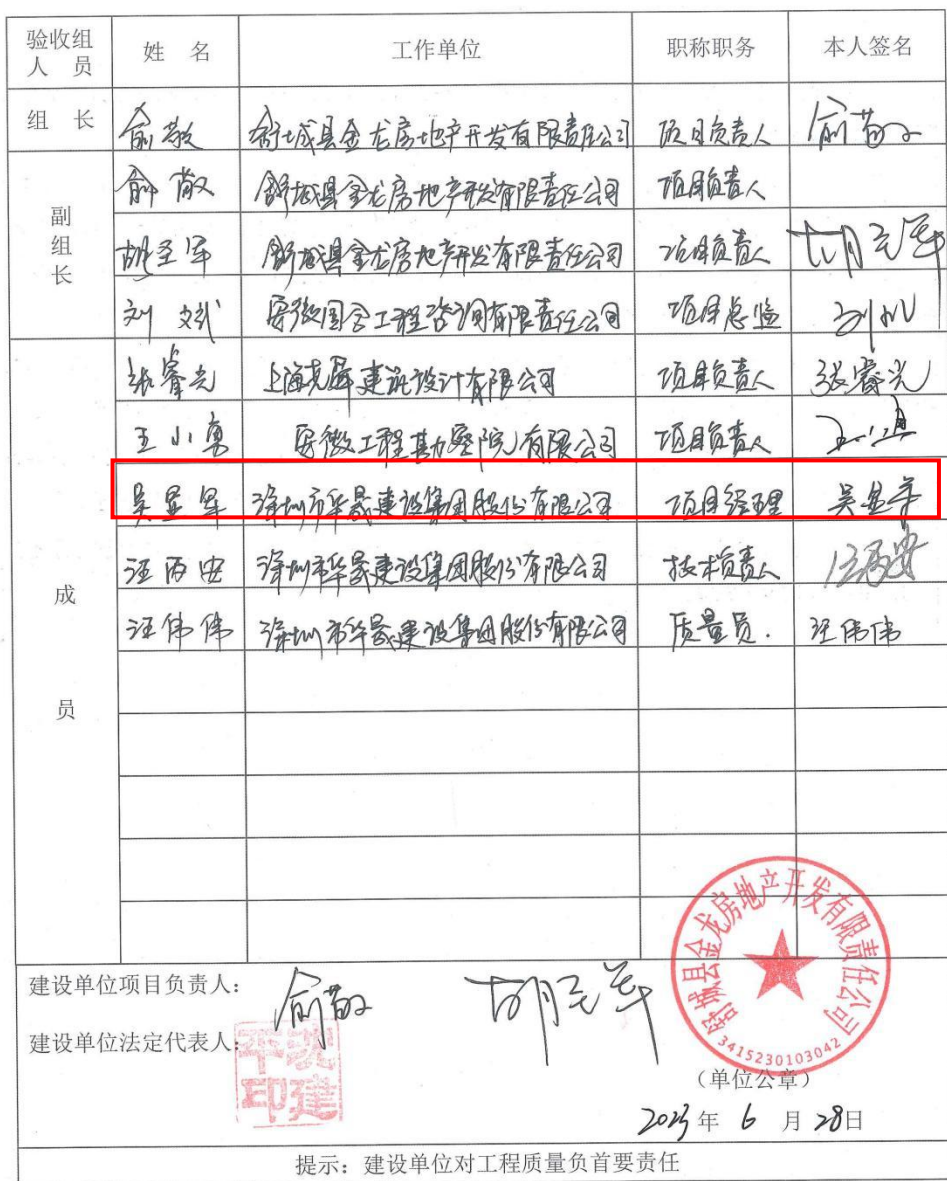 验收组人 员 姓 名 工作单位 职称职务 本人签名
组 长 俞敬 舒城县金龙房地产开发有限责任公司 项目负责人 俞敬
副组长 俞敬 舒城县金龙房地产开发有限责任公司 项目负责人
胡圣军 舒城县金龙房地产开发有限责任公司 项目负责人 胡圣军
刘斌 安徽国合工程咨询有限责任公司 项目总监 刘斌
成员 张睿光 建筑设计有限公司 项目负责人 张睿光
王小勇 安徽工程勘察院有限公司 项目负责人
吴显军 深圳市华晟建设集团股份有限公司 项目经理 吴显军
汪西安 深圳市华晟建设集团股份有限公司 技术负责人 汪西安
汪伟伟 深圳市华晟建设集团股份有限公司 质量员. 汪伟伟
建设单位项目负责人: 俞敬 胡圣军
建设单位法定代表人:
沈建平印
舒城县金龙房地产开发有限责任公司
3415230103042
(单位公章)
2023年 6 月 28日
提示: 建设单位对工程质量负首要责任